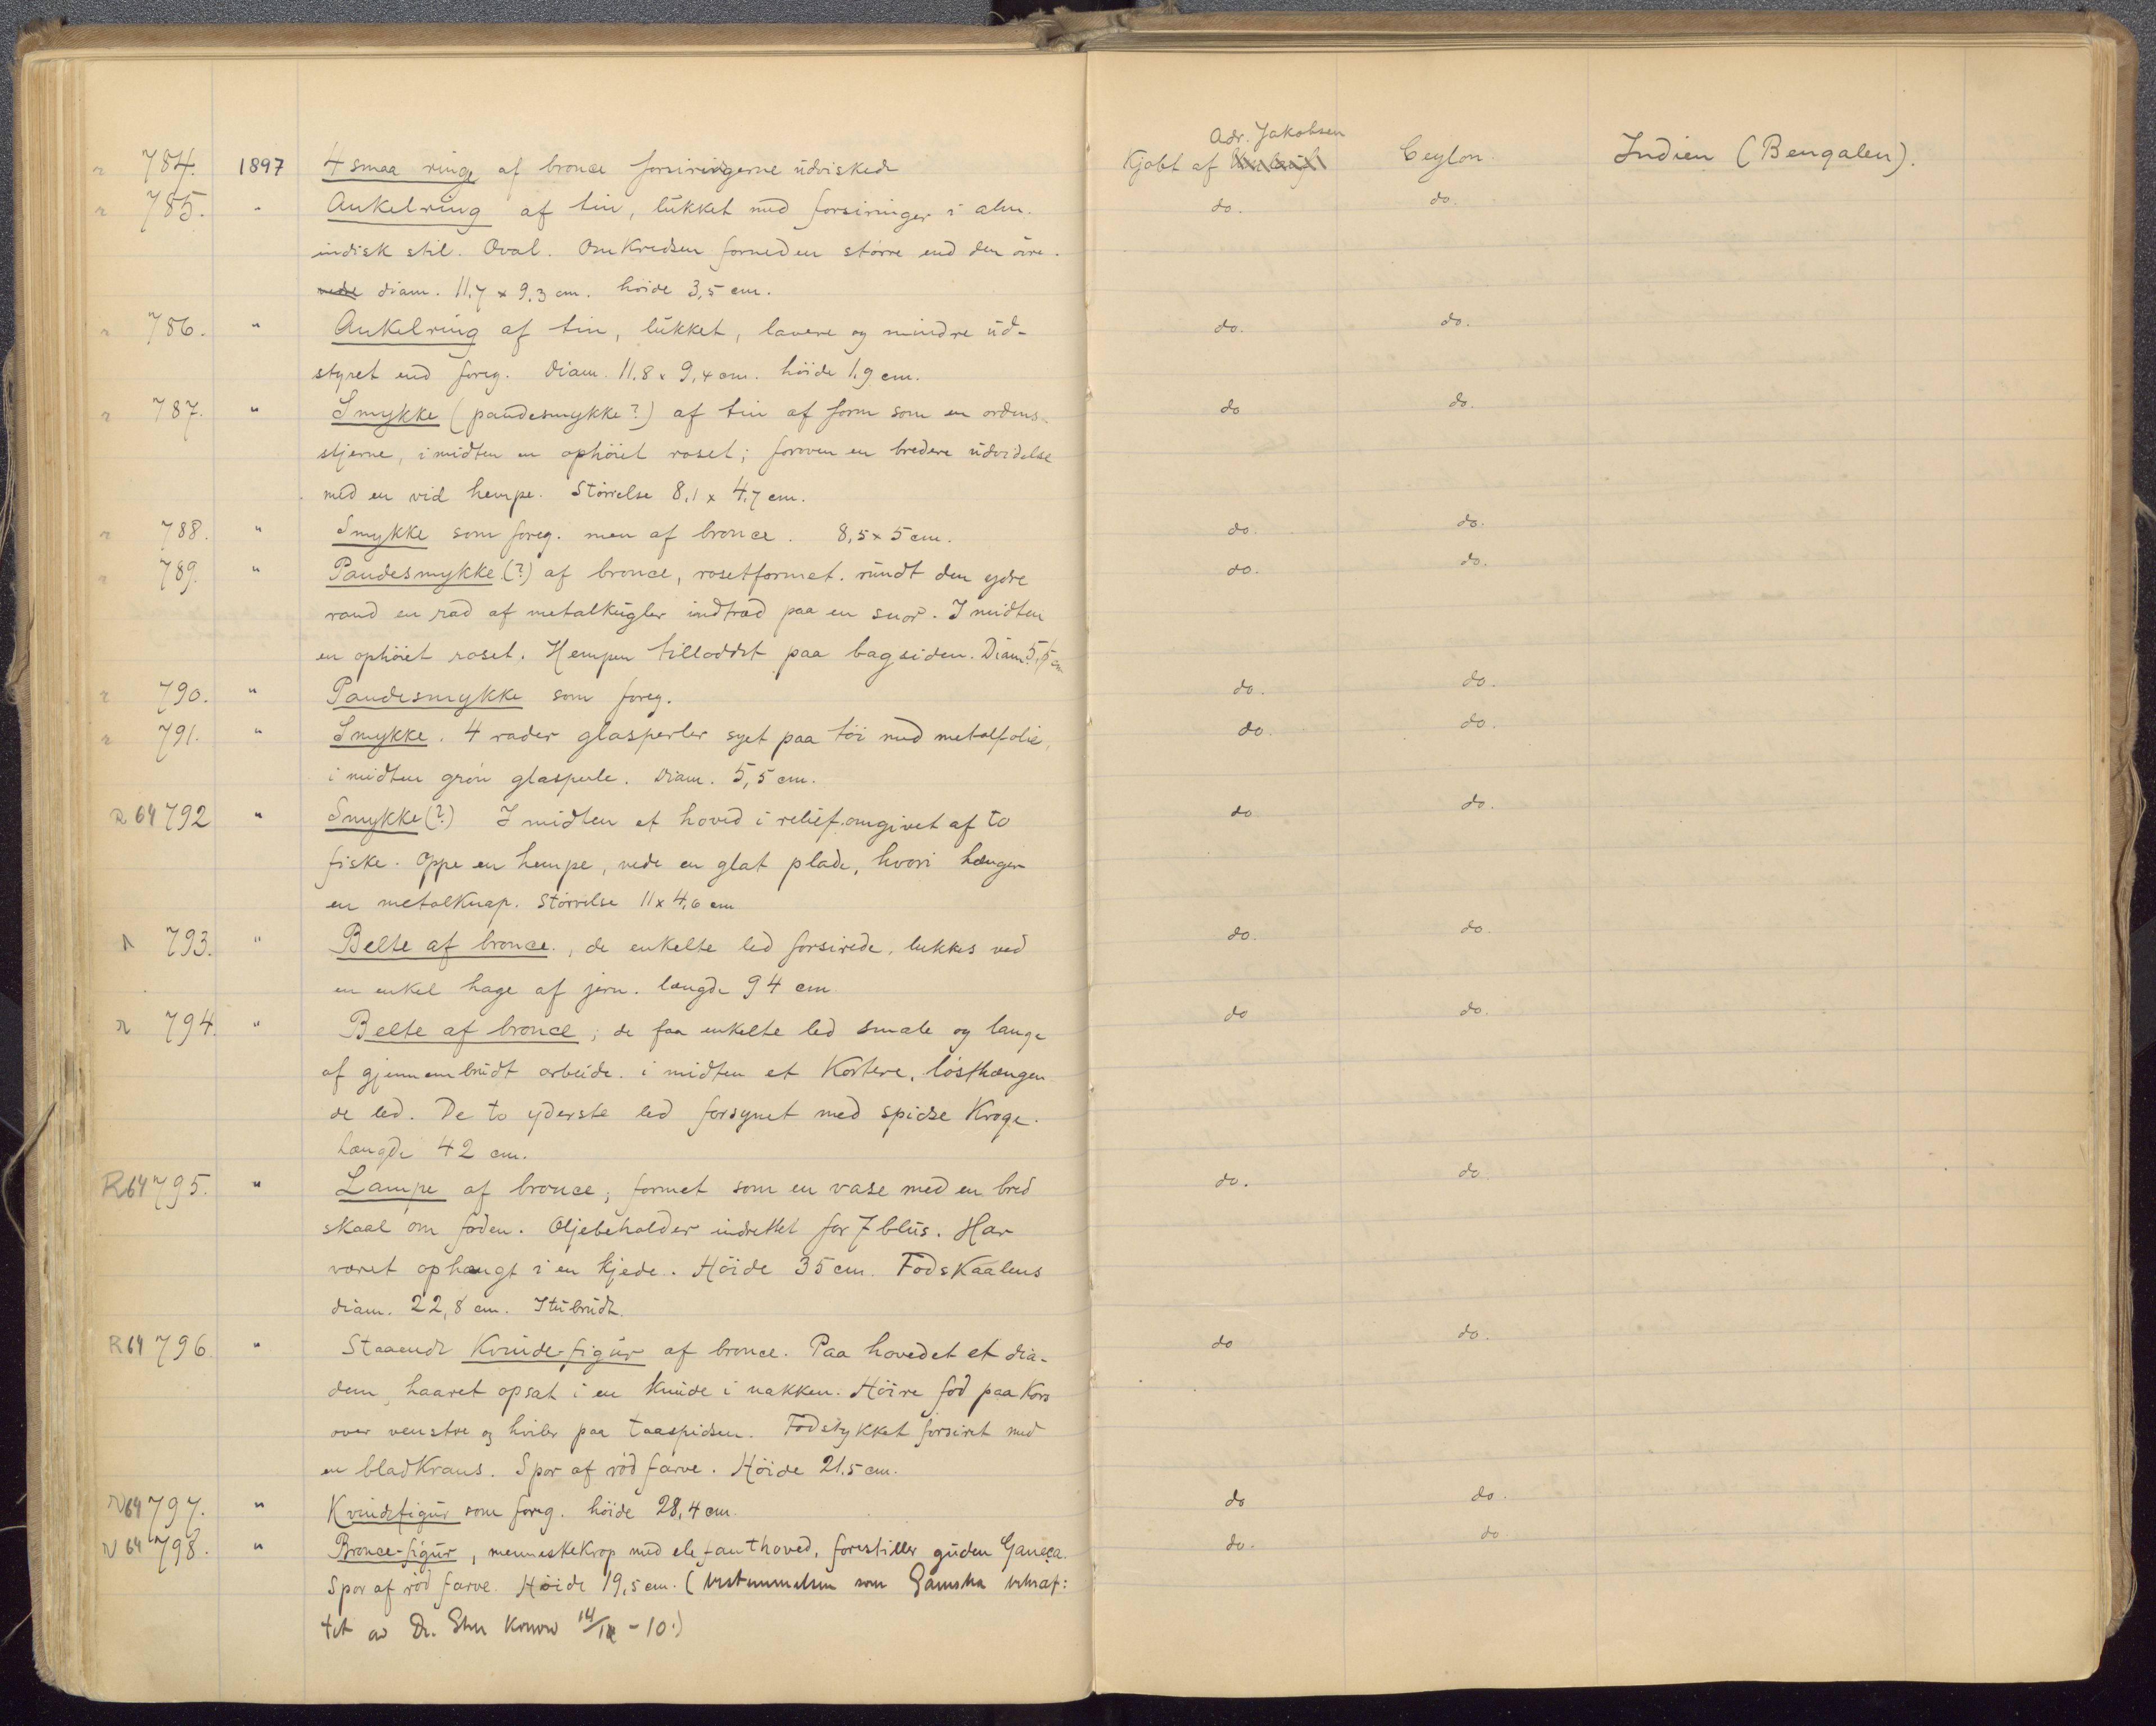 Adr. Jakobsen
r 784. 1897 4 smaa ringe af bronce forsiringerne udviskede Kjøbt af Ceylon. Indien (Bengalen).
r 785. " Ankelring af tin, lukket med forsiringer i alm. do. do.
indisk stil. Oval. Omkredsen forneden större end den övre.
nede diam. 11,7 x 9,3 cm. höide 3,5 cm.
r 786. " Ankelring af tin, lukket, lavere og mindre ud- do. do.
styret end foreg. Diam. 11,8 x 9,4 cm. höide 1,9 cm.
r 787. " Smykke (pandesmykke?) af tin af form som en ordens- do do.
stjerne, i midten en ophöiet roset; foroven en bredere udvidelse
med en vid hempe. Störrelse 8,1 x 4,7 cm.
r 788. " Smykke som foreg. men af bronce. 8,5 x 5 cm. do. do.
r 789. " Pandesmykke (?) af bronce, rosetformet. rundt den ydre do. do.
rand en rad af metalkugler indtræd paa en snor. I midten
en ophöiet roset. Hempen tilloddet paa bagsiden. Diam. 5,5 cm
r 790. " Pandesmykke som foreg. do. do.
r 791. " Smykke. 4 rader glasperler syet paa töi med metalfolie, do. do.
i midten grön glasperle. Diam. 5,5 cm.
R 64 792 " Smykke (?) I midten et hoved i relief omgivet af to do do.
fiske. Oppe en hempe, nede en glat plade, hvori hænger
en metalknap. Störrelse 11 x 4,6 cm
r 793. " Belte af bronce., de enkelte led forsirede, lukkes ved do. do.
en enkel hage af jern. længde 94 cm
r 794. " Belte af bronce; de faa enkelte led smale og lange do do.
af gjennembrudt arbeide. i midten et kortere, lösthængen
de led. De to yderste led forsynet med spidse Kroge.
Længde 42 cm.
R 64 795. " Lampe af bronce; formet som en vase med en bred do. do.
skaal om foden. Oljebeholder indrettet for 7 blus. Har
været ophængt i en kjede. Höide 35 cm. Fodskaalens
diam. 22,8 cm. Itubrudt.
R 64 796. " Staaende Kvinde-figur af bronce. Paa hovedet et dia- do do.
dem, haaret opsat i en knude i nakken. Höire fod paa Kors
over venstre og hviler paa taaspidsen. Fodstykket forsiret med
en bladkrans. Spor af röd farve. Höide 21,5 cm.
R 64 797. " Kvindefigur som foreg. höide 28,4 cm. do do.
R 64 798. " Bronce-figur, menneskekrop med elefanthoved, forestiller guden Ganeça. do. do.
Spor af röd farve. Höide 19,5 cm. (bestemmelsen som Ganesha bekræf:
tet av Dr. Sten Konow 14/ -10.)